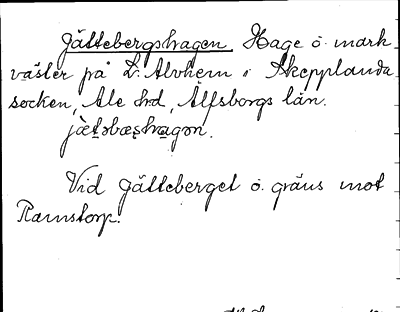 Jättebergshagen Hage o. mark
väster på L. Alvhem i Skepplanda
socken, Ale hd, Älfsborgs län.
jætəbærshagən.
Vid Jätteberget o. gräns mot
Ramstorp.